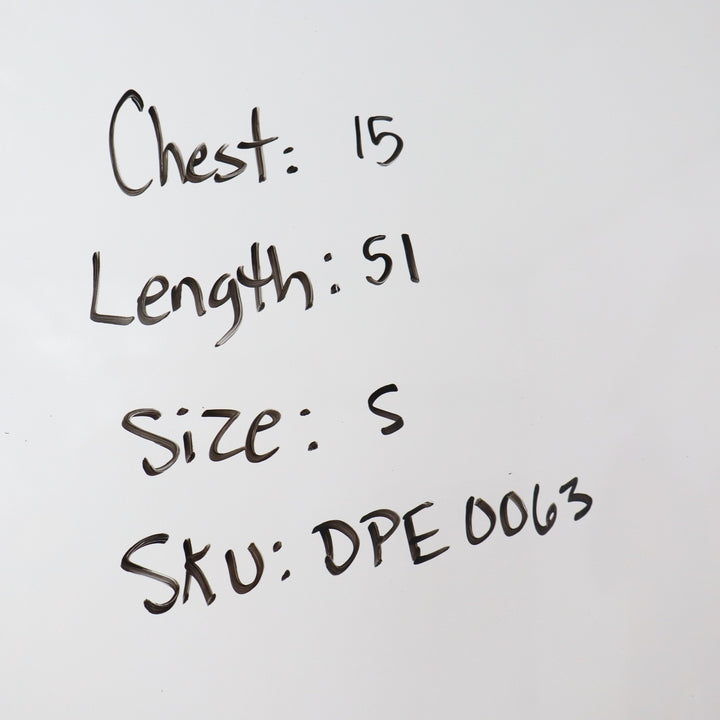 Chest: 15
Length: 51
Size: S
SKU: DPE 0063